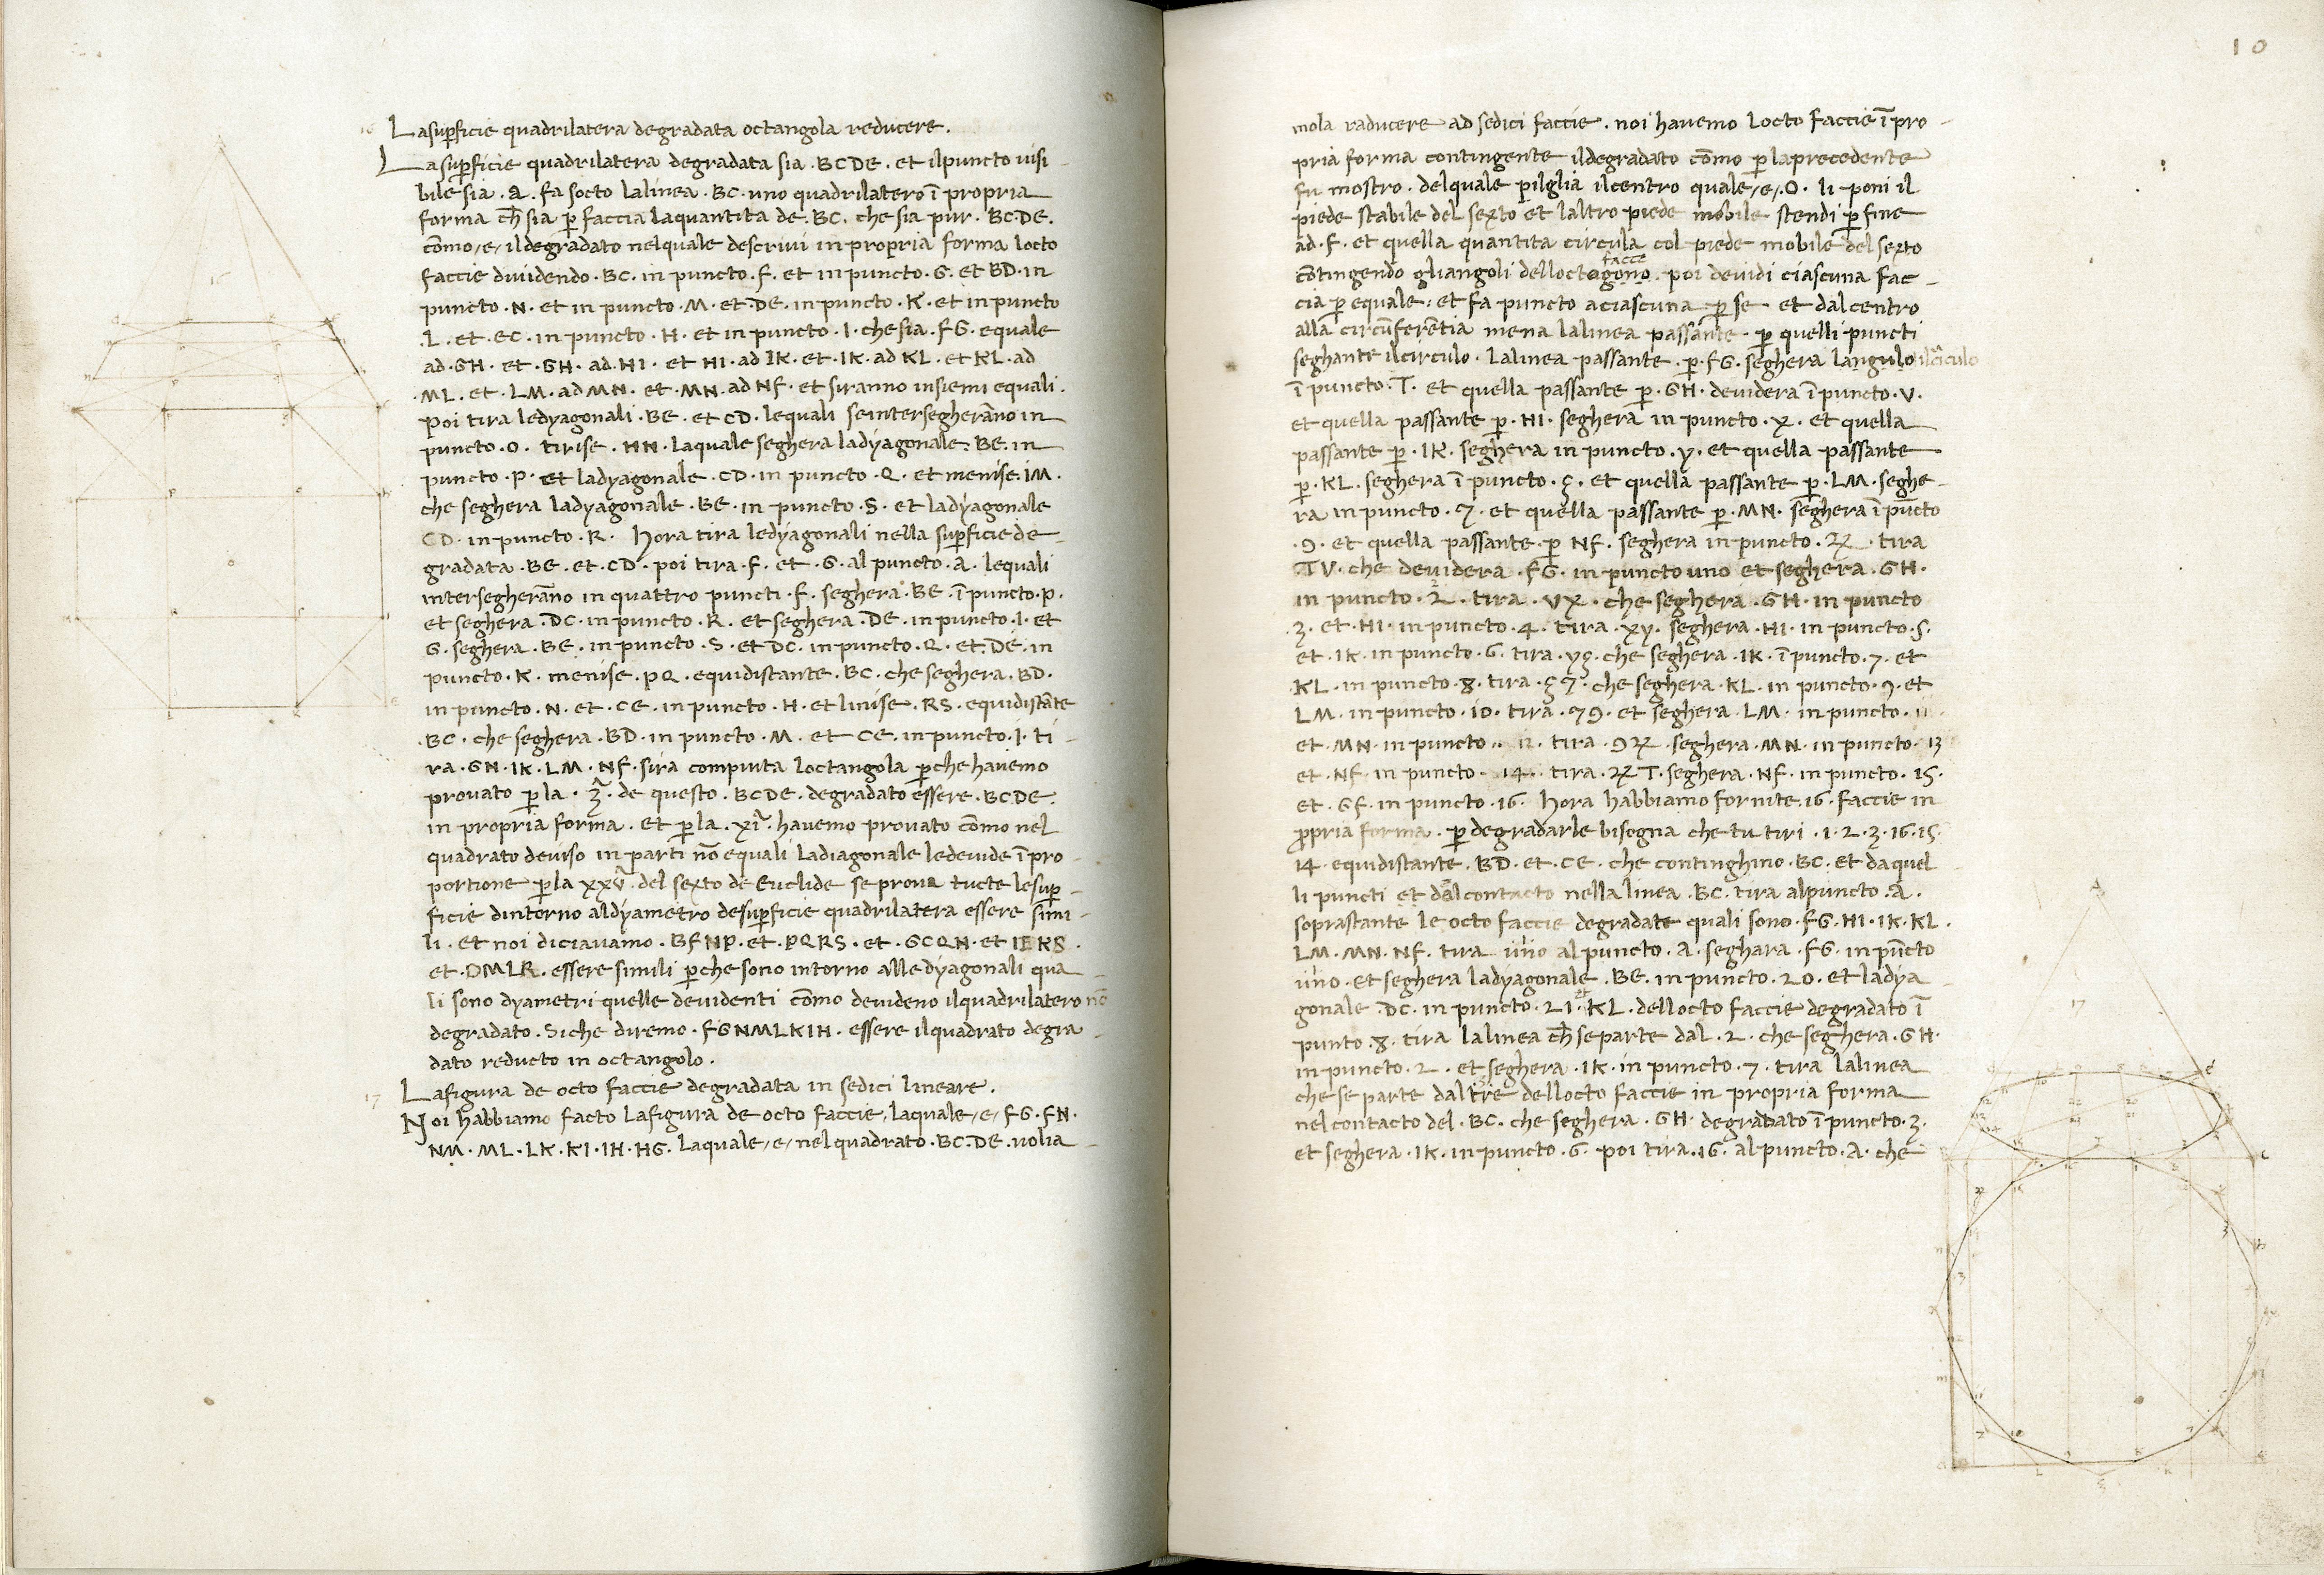 10
16 Lasup̄ficie quadrilatera degradata octangola reducere.
Lasup̄ficie quadrilatera degradata sia · BCDE · et ilpuncto visi-
bile sia · A · fa socto lalinea · BC · uno quadrilatero ī propria
forma ch̄ sia p̄ faccia laquantita de · BC · che sia pur · BC.DE.
cōmo /e/ ildegradato nelquale descrivi in propria forma locto
faccie dividendo · BC · in puncto · F · et in puncto · G · et BD · in
puncto · N · et in puncto · M · et · DE · in puncto · K · et in puncto
· L · et · EC · in puncto · H · et in puncto · I · che sia · FG · equale
ad · GH · et · GH · ad · HI · et HI · ad IK · et · IK · ad KL · et KL · ad
· ML · et · LM · ad MN · et · MN · ad NF · et siranno insiemi equali ·
Poi tira ledyagonali · BE · et CD · lequali seintersegherāno in
puncto · O · tirise · HN · laquale seghera ladyagonale · BE · in
puncto · P · et ladyagonale · CD · in puncto · Q · et menise · IM ·
che seghera ladyagonale · BE · in puncto · S · et ladyagonale
CD · in puncto · R · Hora tira ledyagonali nella sup̄ficie de-
gradata · BE · et · CD · poi tira · F · et · G · al puncto · A · lequali
intersegherāno in quattro puncti · F · seghera · BE · ī puncto · P ·
et seghera · DC · in puncto · R · et seghera · DE · in puncto · I · et
G · seghera · BE · in puncto · S · et DC · in puncto · Q · et · DE · in
puncto · K · menise · PQ · equidistante · BC · che seghera · BD ·
in puncto · N · et · CE · in puncto · H · et linise · RS · equidistāte
· BC · che seghera · BD · in puncto · M · et CE · in puncto · I · ti-
ra · GH · IK · LM · NF · sira compiuta loctangola p̄che havemo
provato p̄ la · 3ᵃ · de questo · BCDE · degradato essere · BC.DE.
in propria forma · et p̄ la · XIᵃ · havemo provato cōmo nel
quadrato deviso in parti nō equali ladiagonale ledevide ī pro-
portione p̄ la XXVᵃ · del sexto de Euclide se prova tucte lesup̄-
ficie dintorno aldyametro desup̄ficie quadrilatera essere simi-
li · et noi diciavamo · BFNP · et · PQRS · et · GCQH · et IEKS ·
et · DMLR · essere simili p̄che sono intorno alle dyagonali qua-
li sono dyametri quelle devidenti cōmo devideno ilquadrilatero nō
degradato · Siche diremo · FGNMLKIH · essere ilquadrato degra-
dato reducto in octangolo ·
17 Lafigura de octo faccie degradata in sedici lineare ·
Noi habbiamo facto lafigura de octo faccie, laquale /e/ FG · FN ·
NM · ML · LK · KI · IH · HG · laquale /e/ nelquadrato · BC.DE · volia-
mola raducere ad sedici faccie · noi havemo locto faccie ī pro-
pria forma contingente ildegradato cōmo p̄ laprecedente
fu mostro · delquale pilglia ilcentro quale /e/ · O · li poni il
piede stabile del sexto et laltro piede mobile stendi p̄ fine
ad · F · et quella quantita circula col piede mobile del sexto
cōtingendo gliangoli delloctagono · poi devidi ciascuna fac-
facce
cia p̄ equale · et fa puncto aciascuna p̄ se et dal centro
alla circūferētia mena lalinea passante p̄ quelli puncti
seghante ilcirculo · lalinea passante · p̄ · FG · seghera langulo ilcirculo
ī puncto · T · et quella passante p̄ · GH · devidera ī puncto · V ·
et quella passante p̄ · HI · seghera in puncto · X · et quella
passante p̄ · IK · seghera in puncto · y · et quella passante
p̄ · KL · seghera ī puncto · ç · et quella passante p̄ · LM · seghe-
ra in puncto · 7 · et quella passante p̄ · MN · seghera ī pūcto
· 9 · et quella passante p̄ NF · seghera in puncto · ꝝ · tira
TV · che devidera · FG · in puncto uno et seghera · GH ·
in puncto · 2 · tira · VX · che seghera · GH · in puncto
· 3 · et · HI · in puncto · 4 · tira · xy · seghera · HI · in puncto · 5 ·
et · IK · in puncto · 6 · tira · yç · che seghera · IK · ī puncto · 7 · et
KL · in puncto · 8 · tira · ç7 · che seghera · KL · in puncto · 9 · et
LM · in puncto · 10 · tira · 79 · et seghera · LM · in puncto · 11 ·
et · MN · in puncto · 12 · tira · 9ꝝ seghera · MN · in puncto · 13
et · NF · in puncto · 14 · tira · ꝝT · seghera · NF · in puncto · 15 ·
et · GF · in puncto · 16 · Hora habbiamo fornite · 16 · faccie in
propria forma · p̄ degradarle bisogna che tu tiri · 1 · 2 · 3 · 16 · 15 ·
14 · equidistante · BD · et · CE · che continghino · BC · et daquel-
li puncti et dal contacto nella linea · BC · tira alpuncto · A ·
soprastante le octo faccie degradate quali sono · FG · HI · IK · KL ·
LM · MN · NF · tira uno al puncto · A · seghara · FG · in pūcto
uno · et seghera ladyagonale · BE · in puncto · 20 · et ladya-
gonale · DC · in puncto · 21 · KL · dellocto faccie degradato ī
punto · 8 · tira lalinea ch̄ separte dal · 2 · che seghera · GH ·
in puncto · 2 · et seghera · IK · in puncto · 7 · tira lalinea
che se parte daltre dellocto faccie in propria forma
nel contacto del · BC · che seghera · GH · degradato ī puncto · 3 ·
et seghera · IK · in puncto · 6 · poi tira · 16 · al puncto · A · che